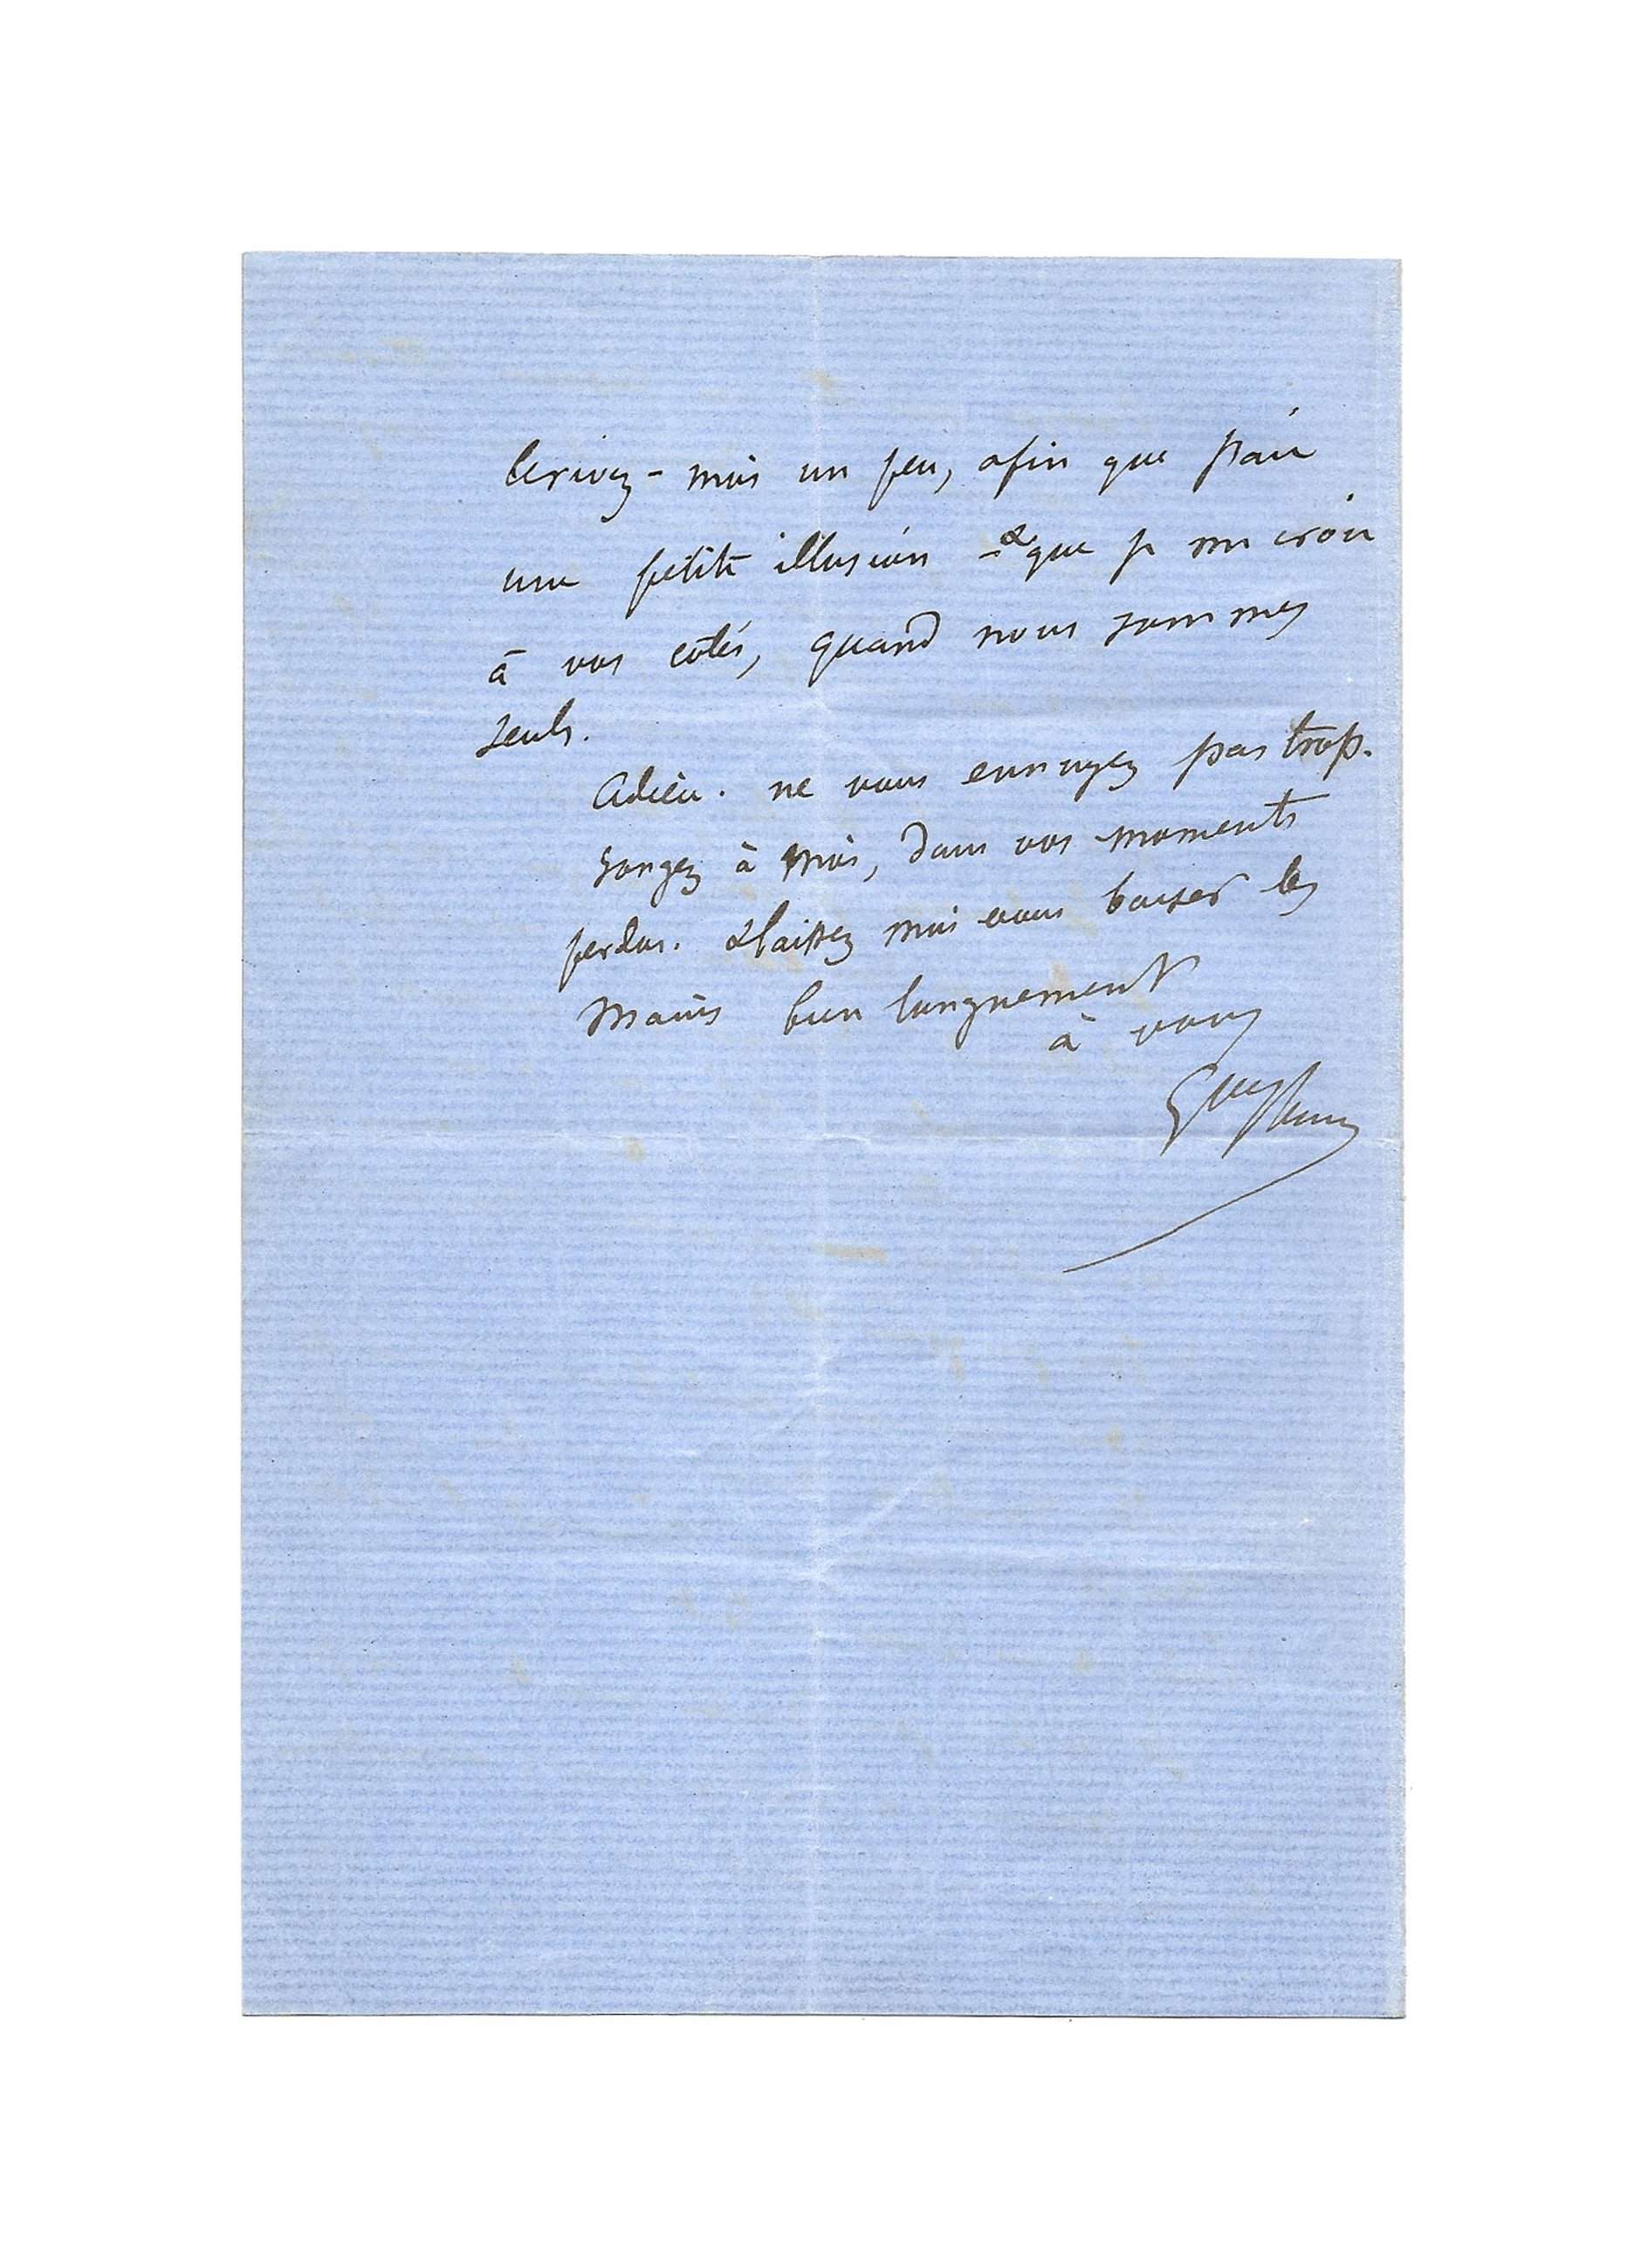 Ecrivez-moi un peu, afin que j'aie
une petite illusion - & que je me croie
à vos cotés, quand nous sommes
seuls.
Adieu. ne vous ennuyez pas trop.
Songez à moi, dans vos moments
perdus. & laissez moi vous baiser les
mains bien longuement
à vous
GveFlaubert